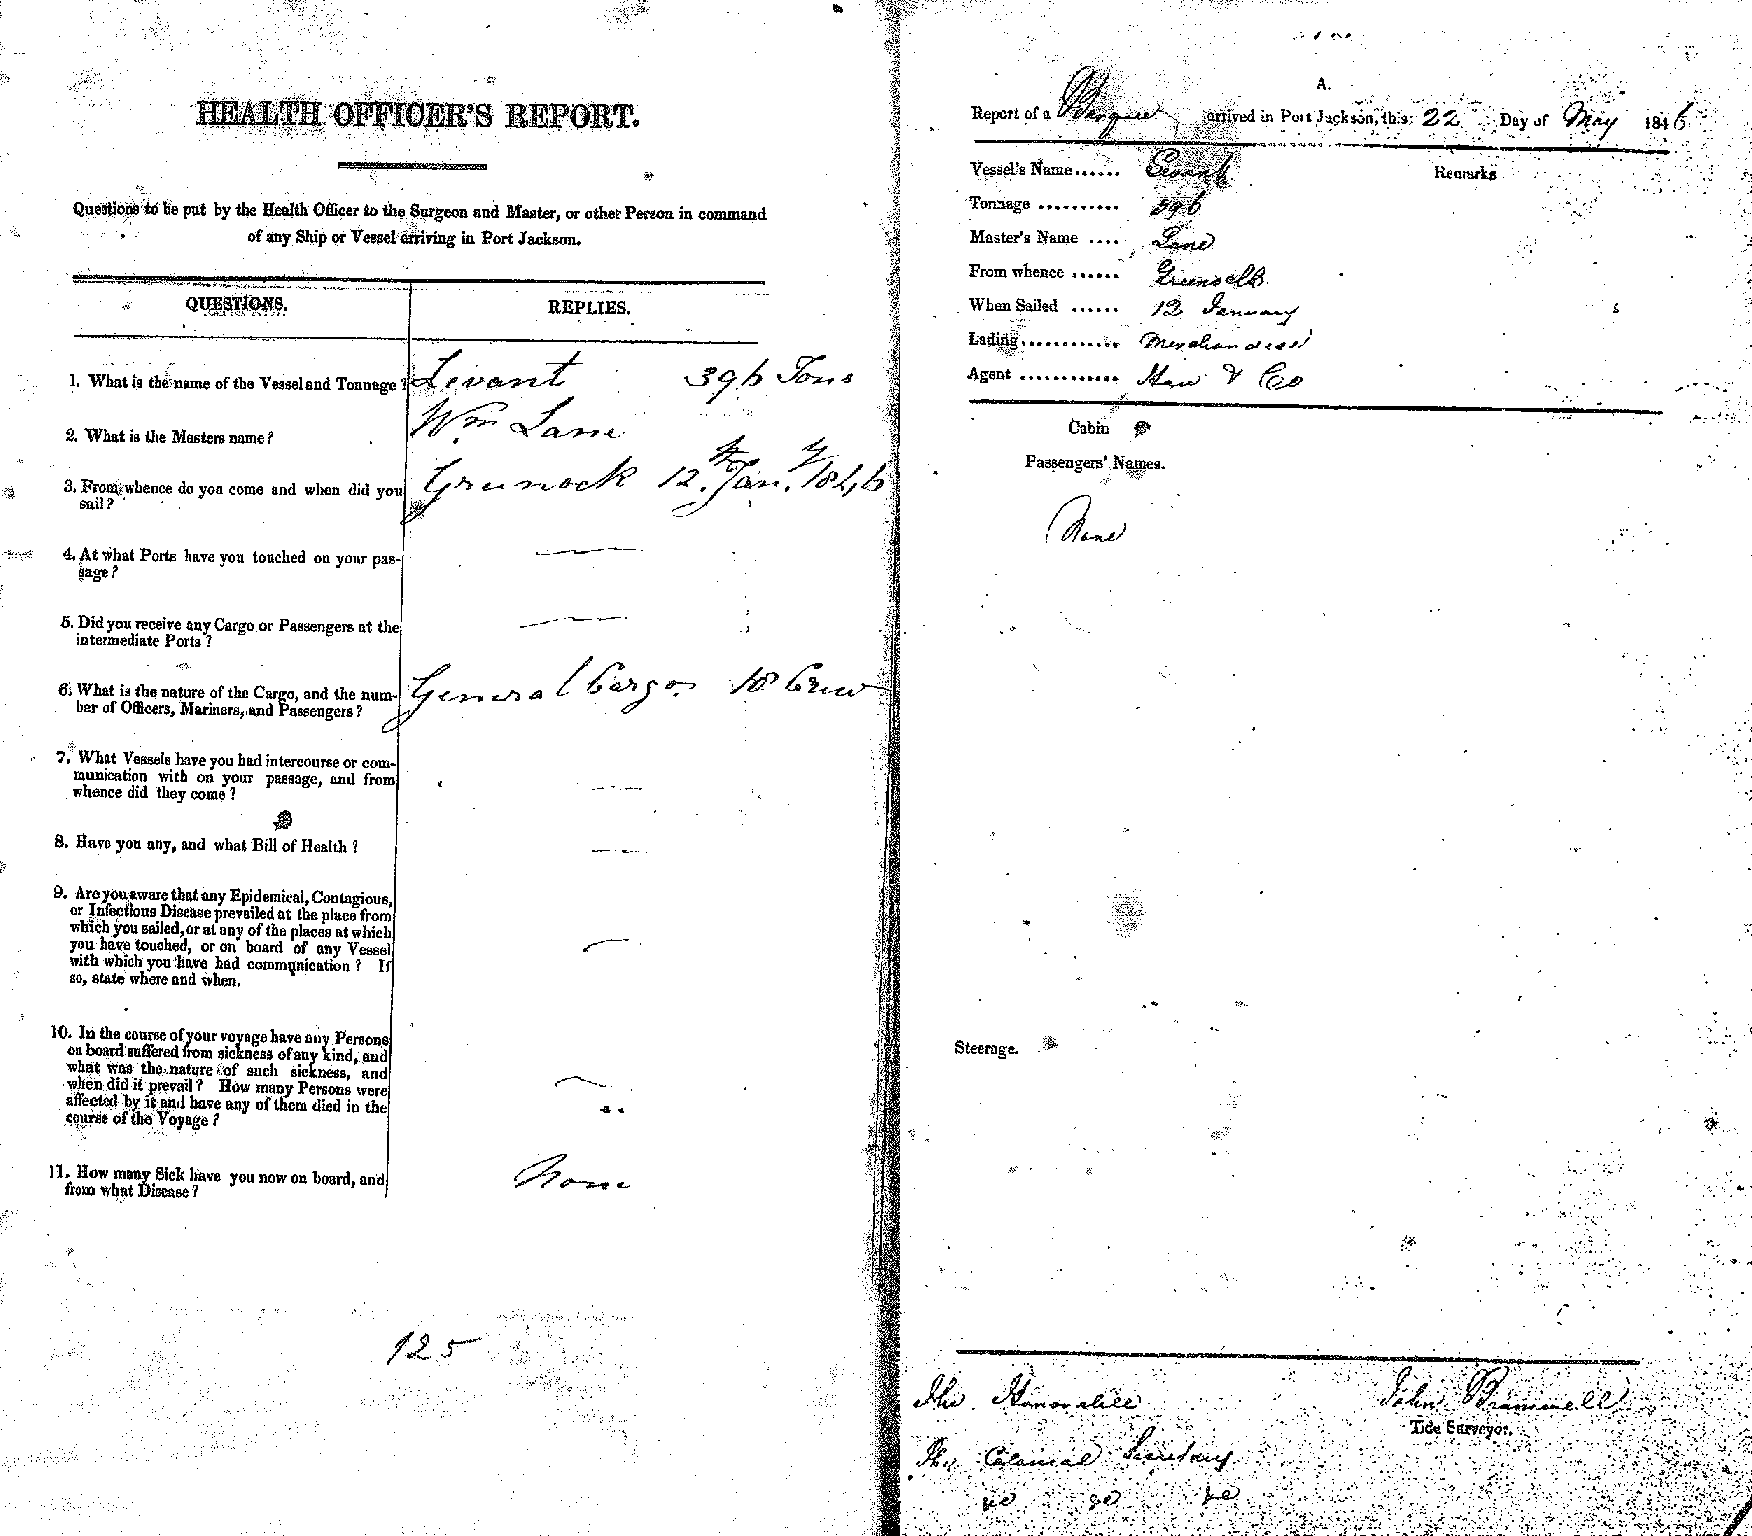 HEALTH OFFICER'S REPORT.
Questions to be put by the Health Officer to the Surgeon and Master, or other Person in command
of any Ship or Vessel arriving in Port Jackson.
QUESTIONS. REPLIES.
1. What is the name of the Vessel and Tonnage? Levant 396 Tons
2. What is the Masters name? Wm Lane
3. From whence do you come and when did you Greenock 12th Jany 1846
sail?
4. At what Ports have you touched on your pas-
sage?
5. Did you receive any Cargo or Passengers at the
intermediate Ports?
6. What is the nature of the Cargo, and the num- General Cargo 18 Crew
ber of Officers, Mariners, and Passengers?
7. What Vessels have you had intercourse or com-
munication with on your passage, and from
whence did they come?
8. Have you any, and what Bill of Health?
9. Are you aware that any Epidemical, Contagious,
or Infectious Disease prevailed at the place from
which you sailed, or at any of the places at which
you have touched, or on board of any Vessel
with which you have had communication? If
so, state where and when.
10. In the course of your voyage have any Persons
on board suffered from sickness of any kind, and
what was the nature of such sickness, and
when did it prevail? How many Persons were
affected by it and have any of them died in the
course of the Voyage?
11. How many Sick have you now on board, and None
from what Disease?
125
A.
Report of a Barque arrived in Port Jackson, this 22 Day of May 1846
Vessel's Name...... Levant Remarks
Tonnage .......... 396
Master's Name .... Lane
From whence ...... Greenock
When Sailed ...... 12 January
Lading............ Merchandise
Agent ............ & Co
Cabin
Passengers' Names.
None
Steerage.
The Honorable John Bramwell
Tide Surveyor.
The Colonial Secretary